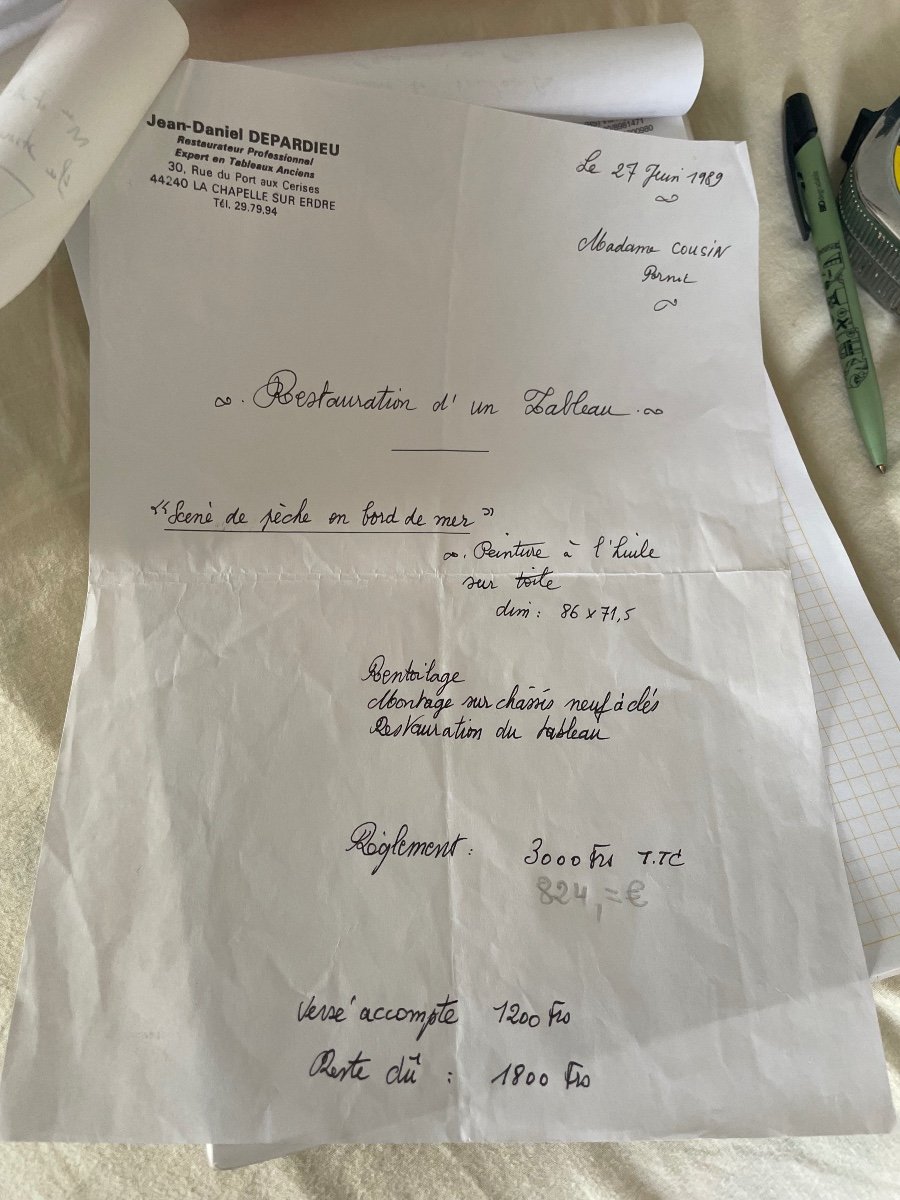 Jean-Daniel DEPARDIEU
Restaurateur Professionnel
Expert en Tableaux Anciens
30, Rue du Port aux Cerises
44240 LA CHAPELLE SUR ERDRE
Tél. 29.79.94
Le 27 Juin 1989
Madame COUSIN
Pornic
Restauration d'un Tableau
"Scenè de pèche en bord de mer"
Peinture à l'huile
sur toile
dim: 86 x 71,5
Rentoilage
Montage sur châssis neuf à clés
Restauration du tableau
Règlement: 3000 Frs T.TC
824,=€
Versé accompte 1200 Frs
Reste dû : 1800 Frs